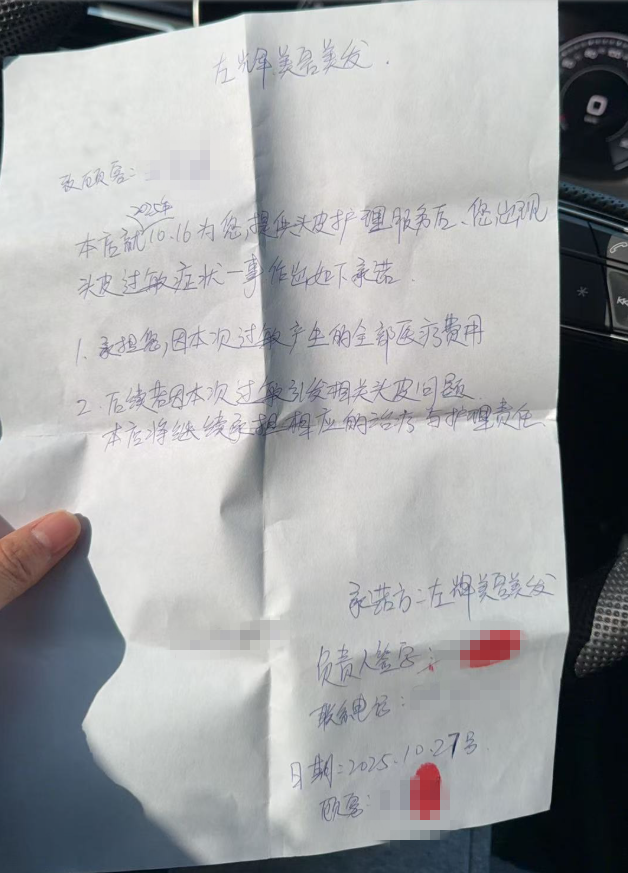 左辉美容美发.
致顾客:
2025年
本店就10.16为您提供头皮护理服务后、您出现
头皮过敏症状一事作出如下承诺.
1. 承担您,因本次过敏产生的全部医疗费用
2. 后续若因本次过敏引发相关头皮问题
本店将继续承担相应的治疗与护理责任.
承诺方:左辉美容美发
负责人签字:
联系电话:
日期:2025.10.27号
顾客: